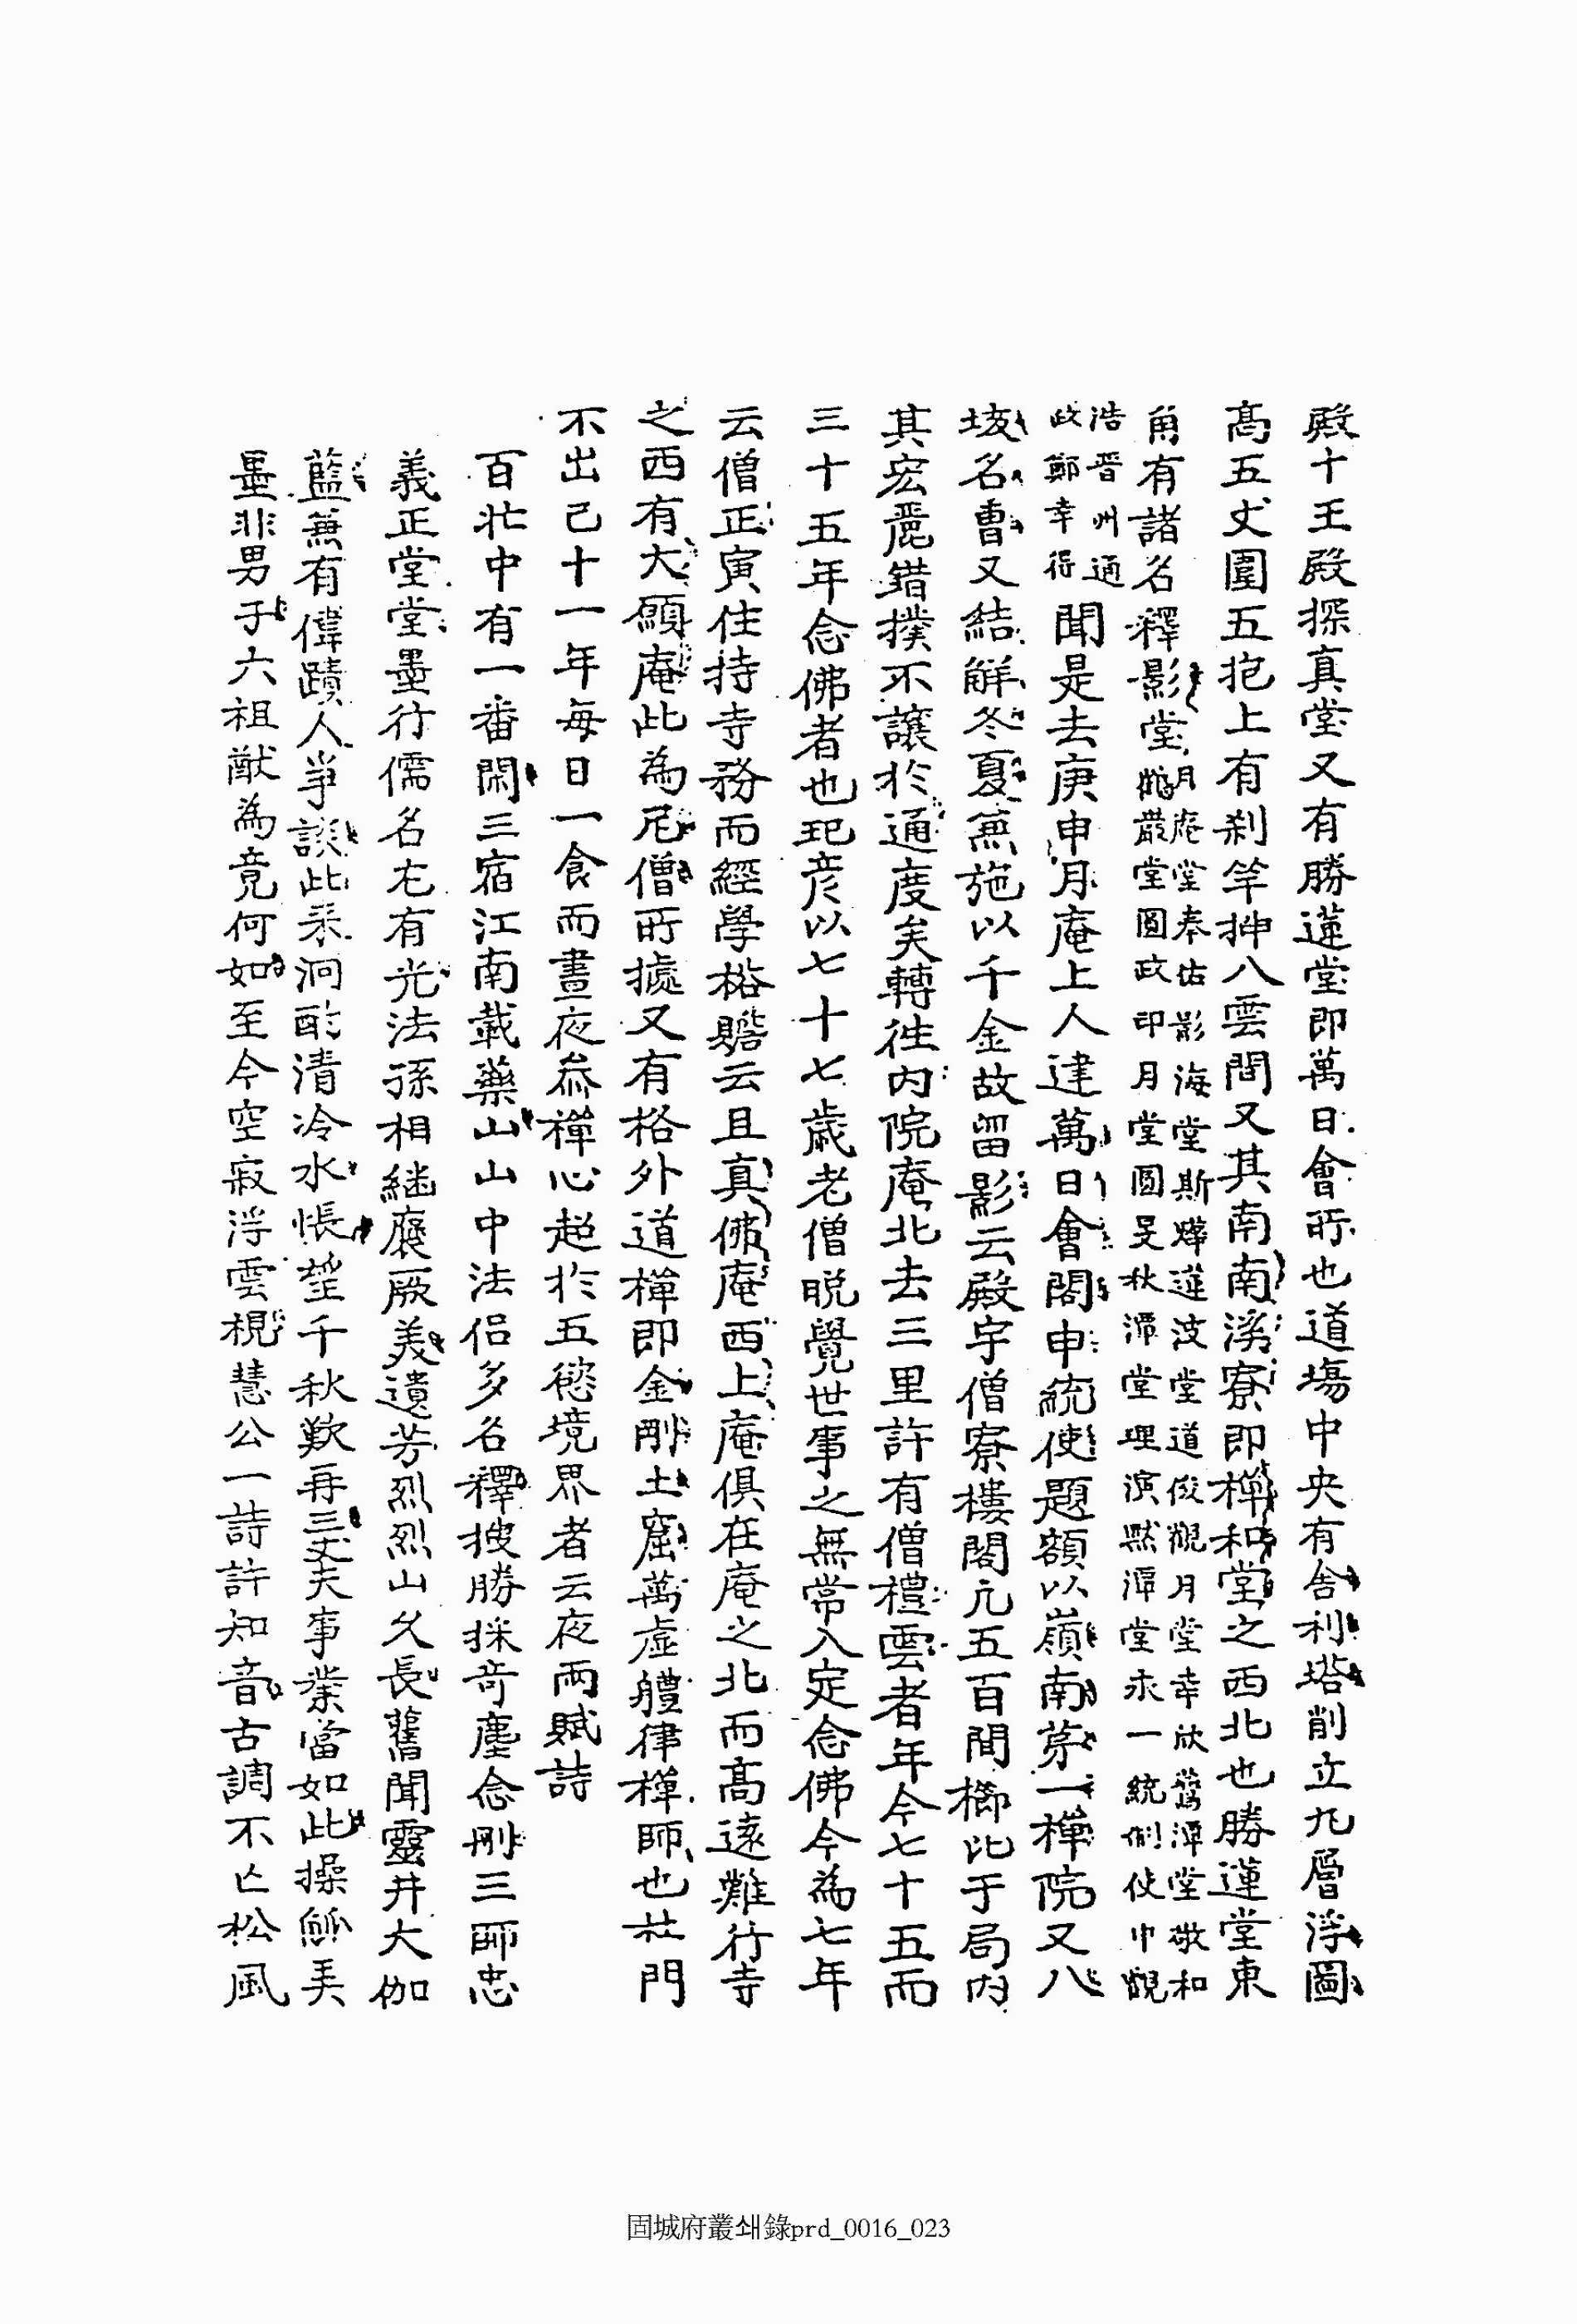 殿十王殿探真堂又有勝蓮堂即萬日會所也道場中央有舍利塔削立九層浮圖
高五丈圍五抱上有刹竿抻八雲間又其南南溪寮即禪和堂之西北也勝蓮堂東
角有諸名釋影堂月庵堂奉佑影海堂斯㷸蓮波堂道俊觀月堂幸欣舊潭堂敬和
嚴堂圓政印月堂圓旻秋潭堂理演默潭堂永一統制使巾觀
浩晋州通
政鄭幸得
聞是去庚申月庵上人建萬日會閣申統使題額以嶺南第一禪院又八
垓名曹又結鮮冬夏兼施以千金故留影云殿宇僧寮樓閣凢五百間櫛比于局内
其宏麗錯撲不讓於通度矣轉徃内院庵北去三里許有僧禮雲者年今七十五而
三十五年念佛者也玘彦以七十七歲老僧晩覺世事之無常入定念佛今為七年
云僧正寅住持寺務而經學格贍云且真佛庵西上庵俱在庵之北而高遠難行寺
之西有大願庵此為尼僧所據又有格外道禪即金剛土窟萬虛軆律禪師也杜門
不出己十一年每日一食而晝夜叅禪心超於五慾境界者云夜雨賦詩
百忙中有一番閑三宿江南載藥山山中法侣多名釋搜勝採竒塵念刪三師忠
義正堂堂墨行儒名尤有光法孫相継襃厥美遺芳烈烈山久長舊聞靈井大伽
藍兼有偉蹟人爭談此来洞酌清冷水悵望千秋歎再三丈夫事業當如此操觚弄
墨非男子六祖猷為竟何如至今空寂浮雲視慧公一詩許知音古調不亡松風
固城府叢쇄錄prd_0016_023